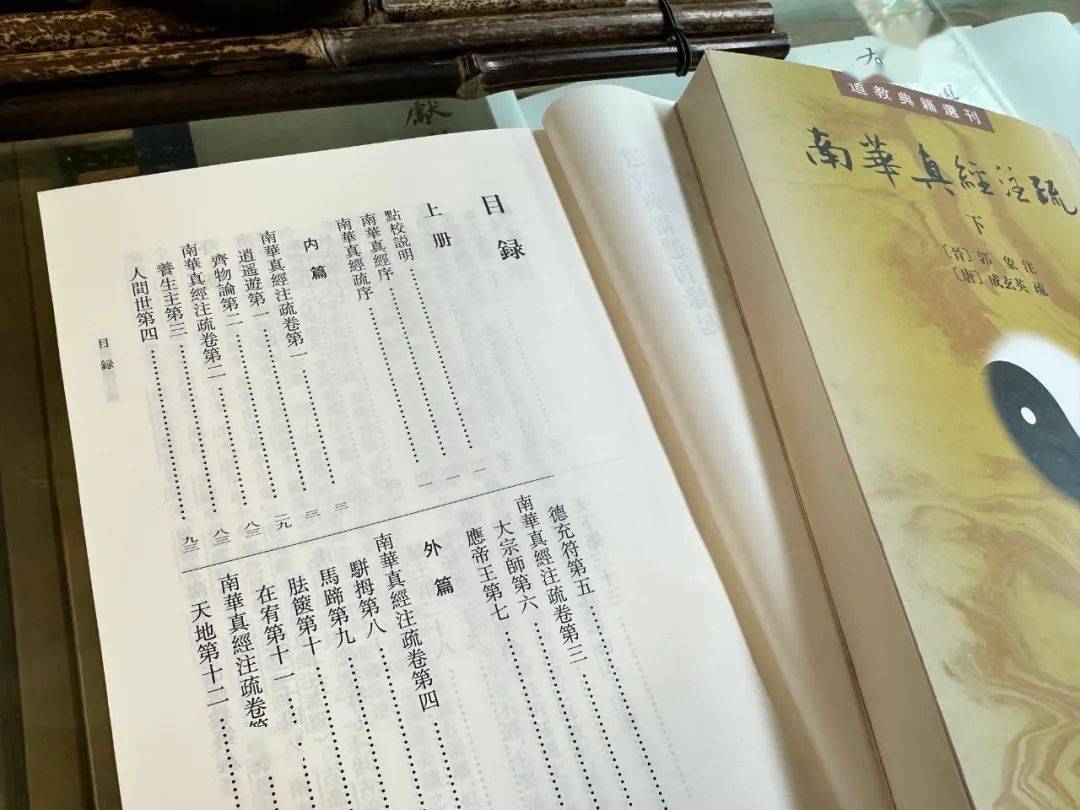 目録
上册
點校説明 一
南華真經序 一
南華真經疏序 一
内篇
南華真經注疏卷第一 三
逍遥遊第一 三
齊物論第二 二九
南華真經注疏卷第二 八三
養生主第三 八三
人間世第四 九三
德充符第五
南華真經注疏卷第三
大宗師第六
應帝王第七
外篇
南華真經注疏卷第四
駢拇第八
馬蹄第九
胠篋第十
在宥第十一
南華真經注疏卷第
天地第十二
目録
道教典籍選刊
南華真經注疏
下
〔晋〕郭象注
〔唐〕成玄英疏
獻